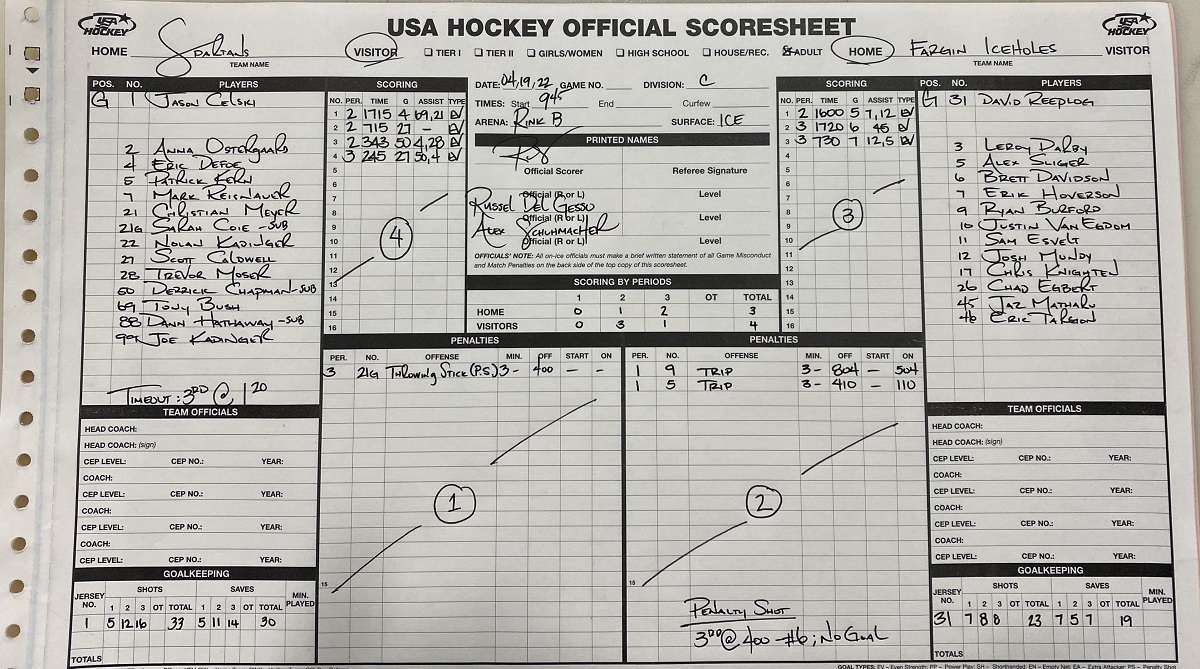 USA HOCKEY OFFICIAL SCORESHEET
USA HOCKEY
USA HOCKEY
HOME Spartans VISITOR
TEAM NAME
TIER I TIER II GIRLS/WOMEN HIGH SCHOOL HOUSE/REC. ADULT
HOME FARGIN ICEHOLES VISITOR
TEAM NAME
POS. NO. PLAYERS
G 1 JASON CELSKI
2 ANNA OSTERGAARD
4 ERIC DEFOE
5 PATRICK KERN
7 MARK REISNAUER
21 CHRISTIAN MEYER
21G SARAH COIE -SUB
22 NOLAN KADINGER
27 SCOTT CALDWELL
28 TREVOR MOSER
50 DERRICK CHAPMAN-SUB
69 TONY BUSH
88 DANN HATHAWAY -SUB
99 JOE KADINGER
TIMEOUT: 3RD @ 120
SCORING
NO. PER. TIME G ASSIST TYPE
1 2 1715 4 69,21 EV
2 2 715 27 - EV
3 2 343 50 4,28 EV
4 3 245 27 50,4 EV
5
6
7
8
9
10
11
12
13
14
15
16
4
DATE: 04,19,22 GAME NO. DIVISION: C
TIMES: Start 945 End Curfew
ARENA: RINK B SURFACE: ICE
PRINTED NAMES
Official Scorer Referee Signature
Official (R or L) Level
RUSSEL DEL GESSO
Official (R or L) Level
ALEX SCHUHMACHER
Official (R or L) Level
OFFICIALS' NOTE: All on-ice officials must make a brief written statement of all Game Misconduct
and Match Penalties on the back side of the top copy of this scoresheet.
SCORING BY PERIODS
1 2 3 OT TOTAL
HOME 0 1 2 3
VISITORS 0 3 1 4
SCORING
NO. PER. TIME G ASSIST TYPE
1 2 1600 5 7,12 EV
2 3 1720 6 45 EV
3 3 730 7 12,5 EV
4
5
6
7
8
9
10
11
12
13
14
15
16
3
POS. NO. PLAYERS
G 31 DAVID REEPLOG
3 LEROY DARBY
5 ALEX SLIGER
6 BRETT DAVIDSON
7 ERIK HOVERSON
9 RYAN BURFORD
10 JUSTIN VAN EGDOM
11 SAM ESVELT
12 JOSH MUNDY
17 CHRIS KNIGHTEN
26 CHAD EGBERT
45 JAZ MATHARU
46 ERIC TARGON
PENALTIES
PER. NO. OFFENSE MIN. OFF START ON
3 21G THROWING STICK (P.S.) 3- 400 - -
15
1
PENALTIES
PER. NO. OFFENSE MIN. OFF START ON
1 9 TRIP 3- 804 - 504
1 5 TRIP 3- 410 - 110
15
2
PENALTY SHOT
3RD @ 400 - #6; NO GOAL
TEAM OFFICIALS
HEAD COACH:
HEAD COACH: (sign)
CEP LEVEL: CEP NO.: YEAR:
COACH:
CEP LEVEL: CEP NO.: YEAR:
COACH:
CEP LEVEL: CEP NO.: YEAR:
COACH:
CEP LEVEL: CEP NO.: YEAR:
GOALKEEPING
JERSEY NO. SHOTS SAVES MIN. PLAYED
1 2 3 OT TOTAL 1 2 3 OT TOTAL
1 5 12 16 33 5 11 14 30
TOTALS
TEAM OFFICIALS
HEAD COACH:
HEAD COACH: (sign)
CEP LEVEL: CEP NO.: YEAR:
COACH:
CEP LEVEL: CEP NO.: YEAR:
COACH:
CEP LEVEL: CEP NO.: YEAR:
COACH:
CEP LEVEL: CEP NO.: YEAR:
GOALKEEPING
JERSEY NO. SHOTS SAVES MIN. PLAYED
1 2 3 OT TOTAL 1 2 3 OT TOTAL
31 7 8 8 23 7 5 7 19
TOTALS
GOAL TYPES: EV - Even Strength; PP - Power Play; SH - Shorthanded; EN - Empty Net; EA - Extra Attacker; PS - Penalty Shot